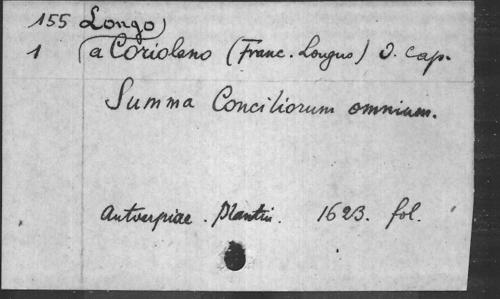 155 Longo
1 a Coriolano (Franc. Longus) O. Cap.
Summa Conciliorum omnium.
Antverpiae. Plantin. 1623. fol.